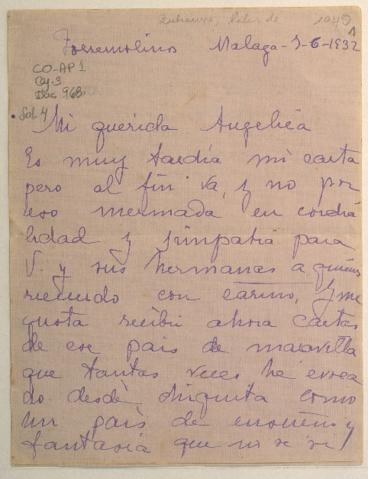 Torremolinos Malaga - 5-6-1932
CO-AP1
Cj-3
Doc 968
Sol 4
Mi querida Angelica
Es muy tardia mi carta
pero al fin va, y no por
eso mermada en cordia
lidad y simpatia para
V. y sus hermanas a quienes
recuerdo con cariño, y me
gusta recibir ahora cartas
de ese pais de maravilla
que tantas veces he evoca
do desde chiquita como
un pais de ensueño y
fantasia que no se ve